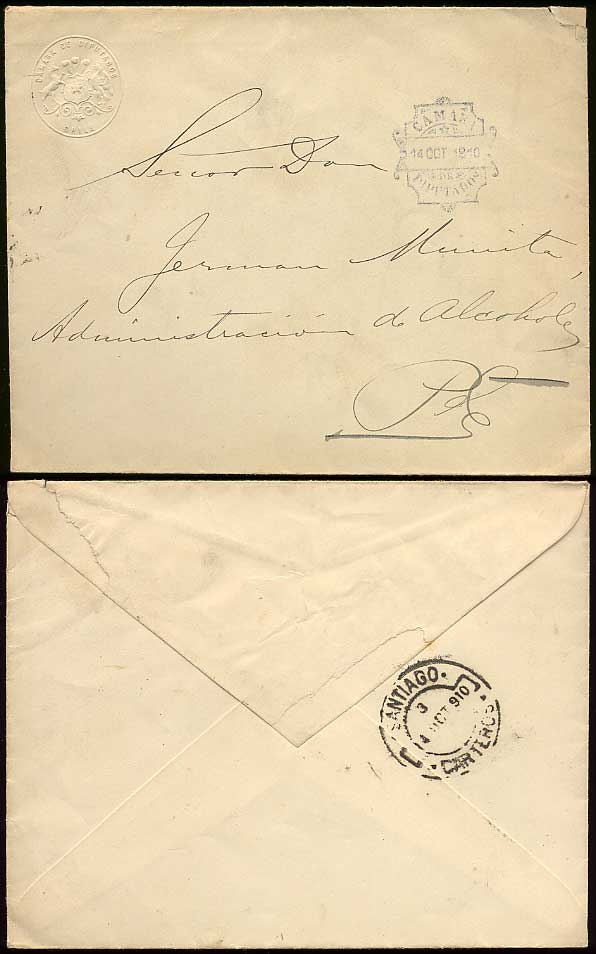 CAMARA DE DIPUTADOS
CHILE
CAMARA
DE
14 OCT 1910
DE
DIPUTADOS
Señor Don
Jerman Munita,
Administración de Alcoholes
Pte
SANTIAGO
3
14 OCT 910
CARTEROS